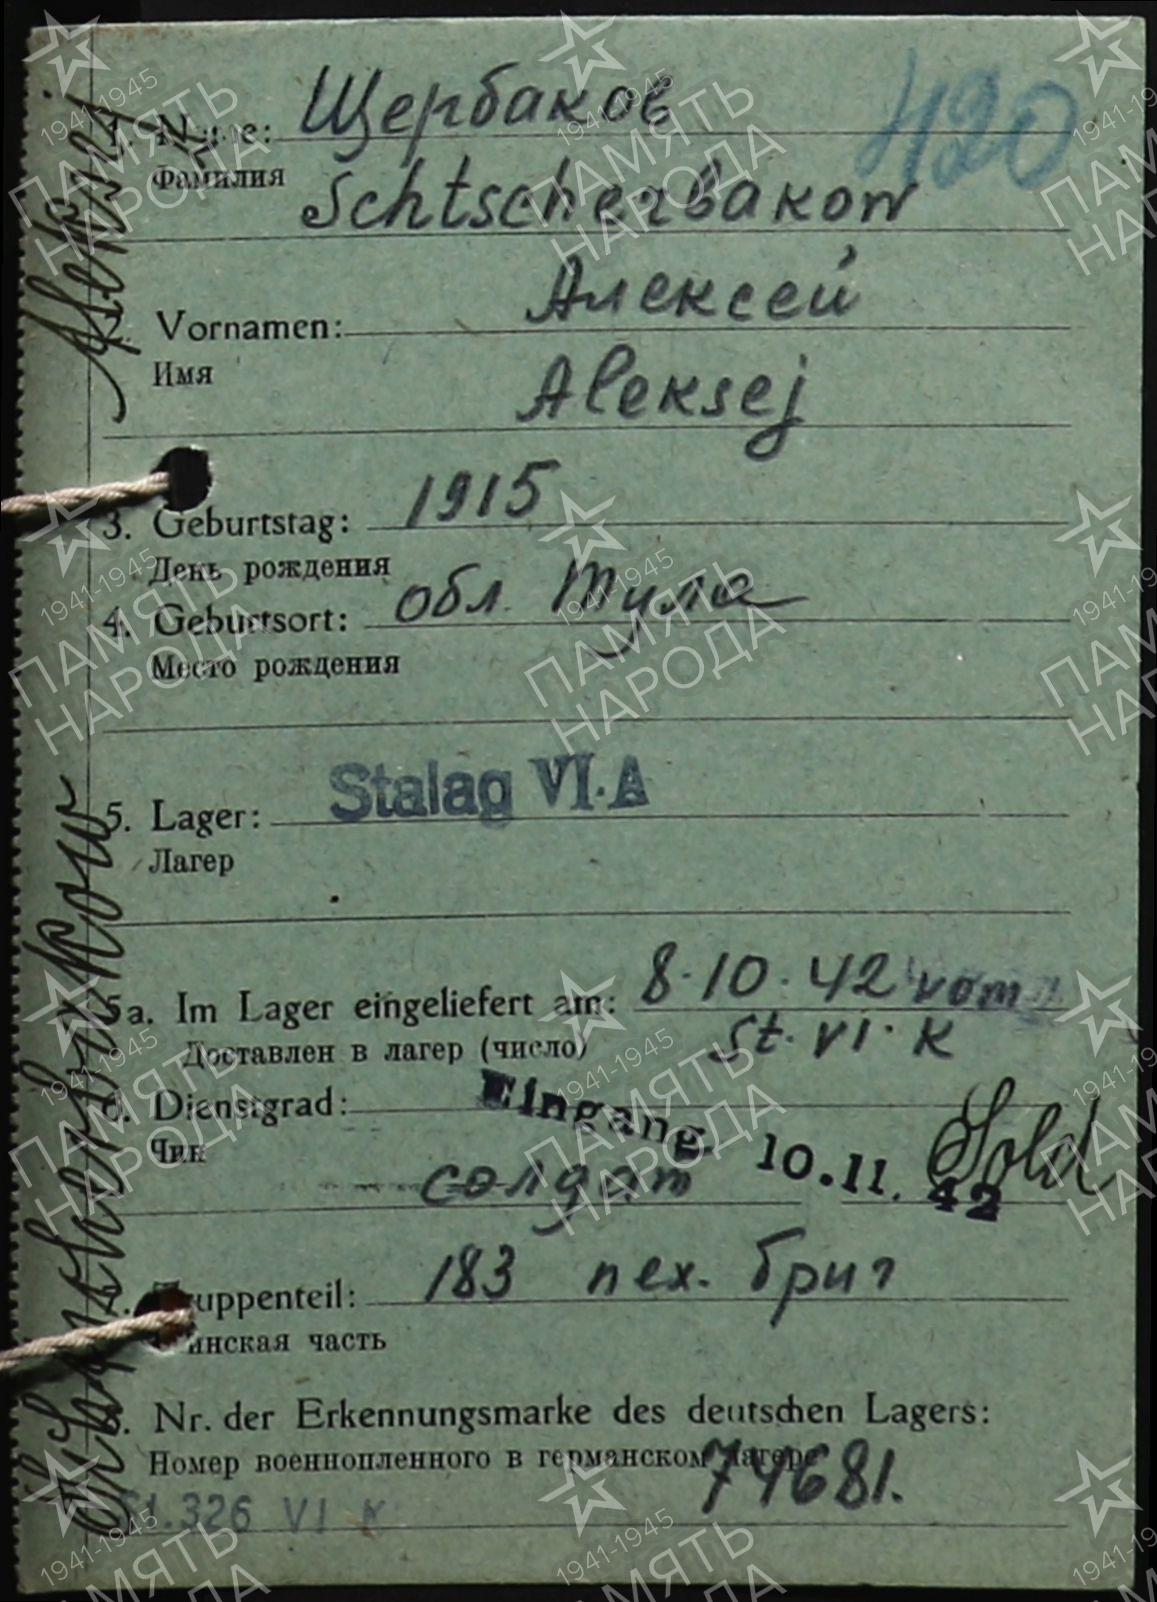 420
1. Name: Щербаков
Фамилия
Schtscherbaкow
Алексей
2. Vornamen:
Имя
Aleкsej
1915
3. Geburtstag:
День рождения
4. Geburtsort: обл. Тула
Место рождения
5. Lager: Stalag VI.A
Лагер
5a. Im Lager eingeliefert am: 8.10.42 vom
Доставлен в лагер (число) St. VI. K
6. Dienstgrad:
Eingang 10.11.42
Чин
солдат
Sold.
7. Truppenteil: 183 пех. бриг
Воинская часть
8. Nr. der Erkennungsmarke des deutschen Lagers:
Номер военнопленного в германском лагере 74681.
St. 326 VI K
Schtscherbakow
Aleksej
1941-1945
ПАМЯТЬ
НАРОДА